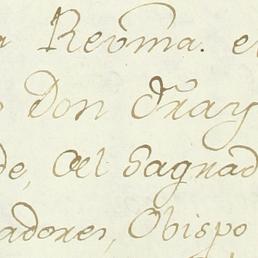 Revma. e
Don Fray
de, del Sagrad
adores, Obispo